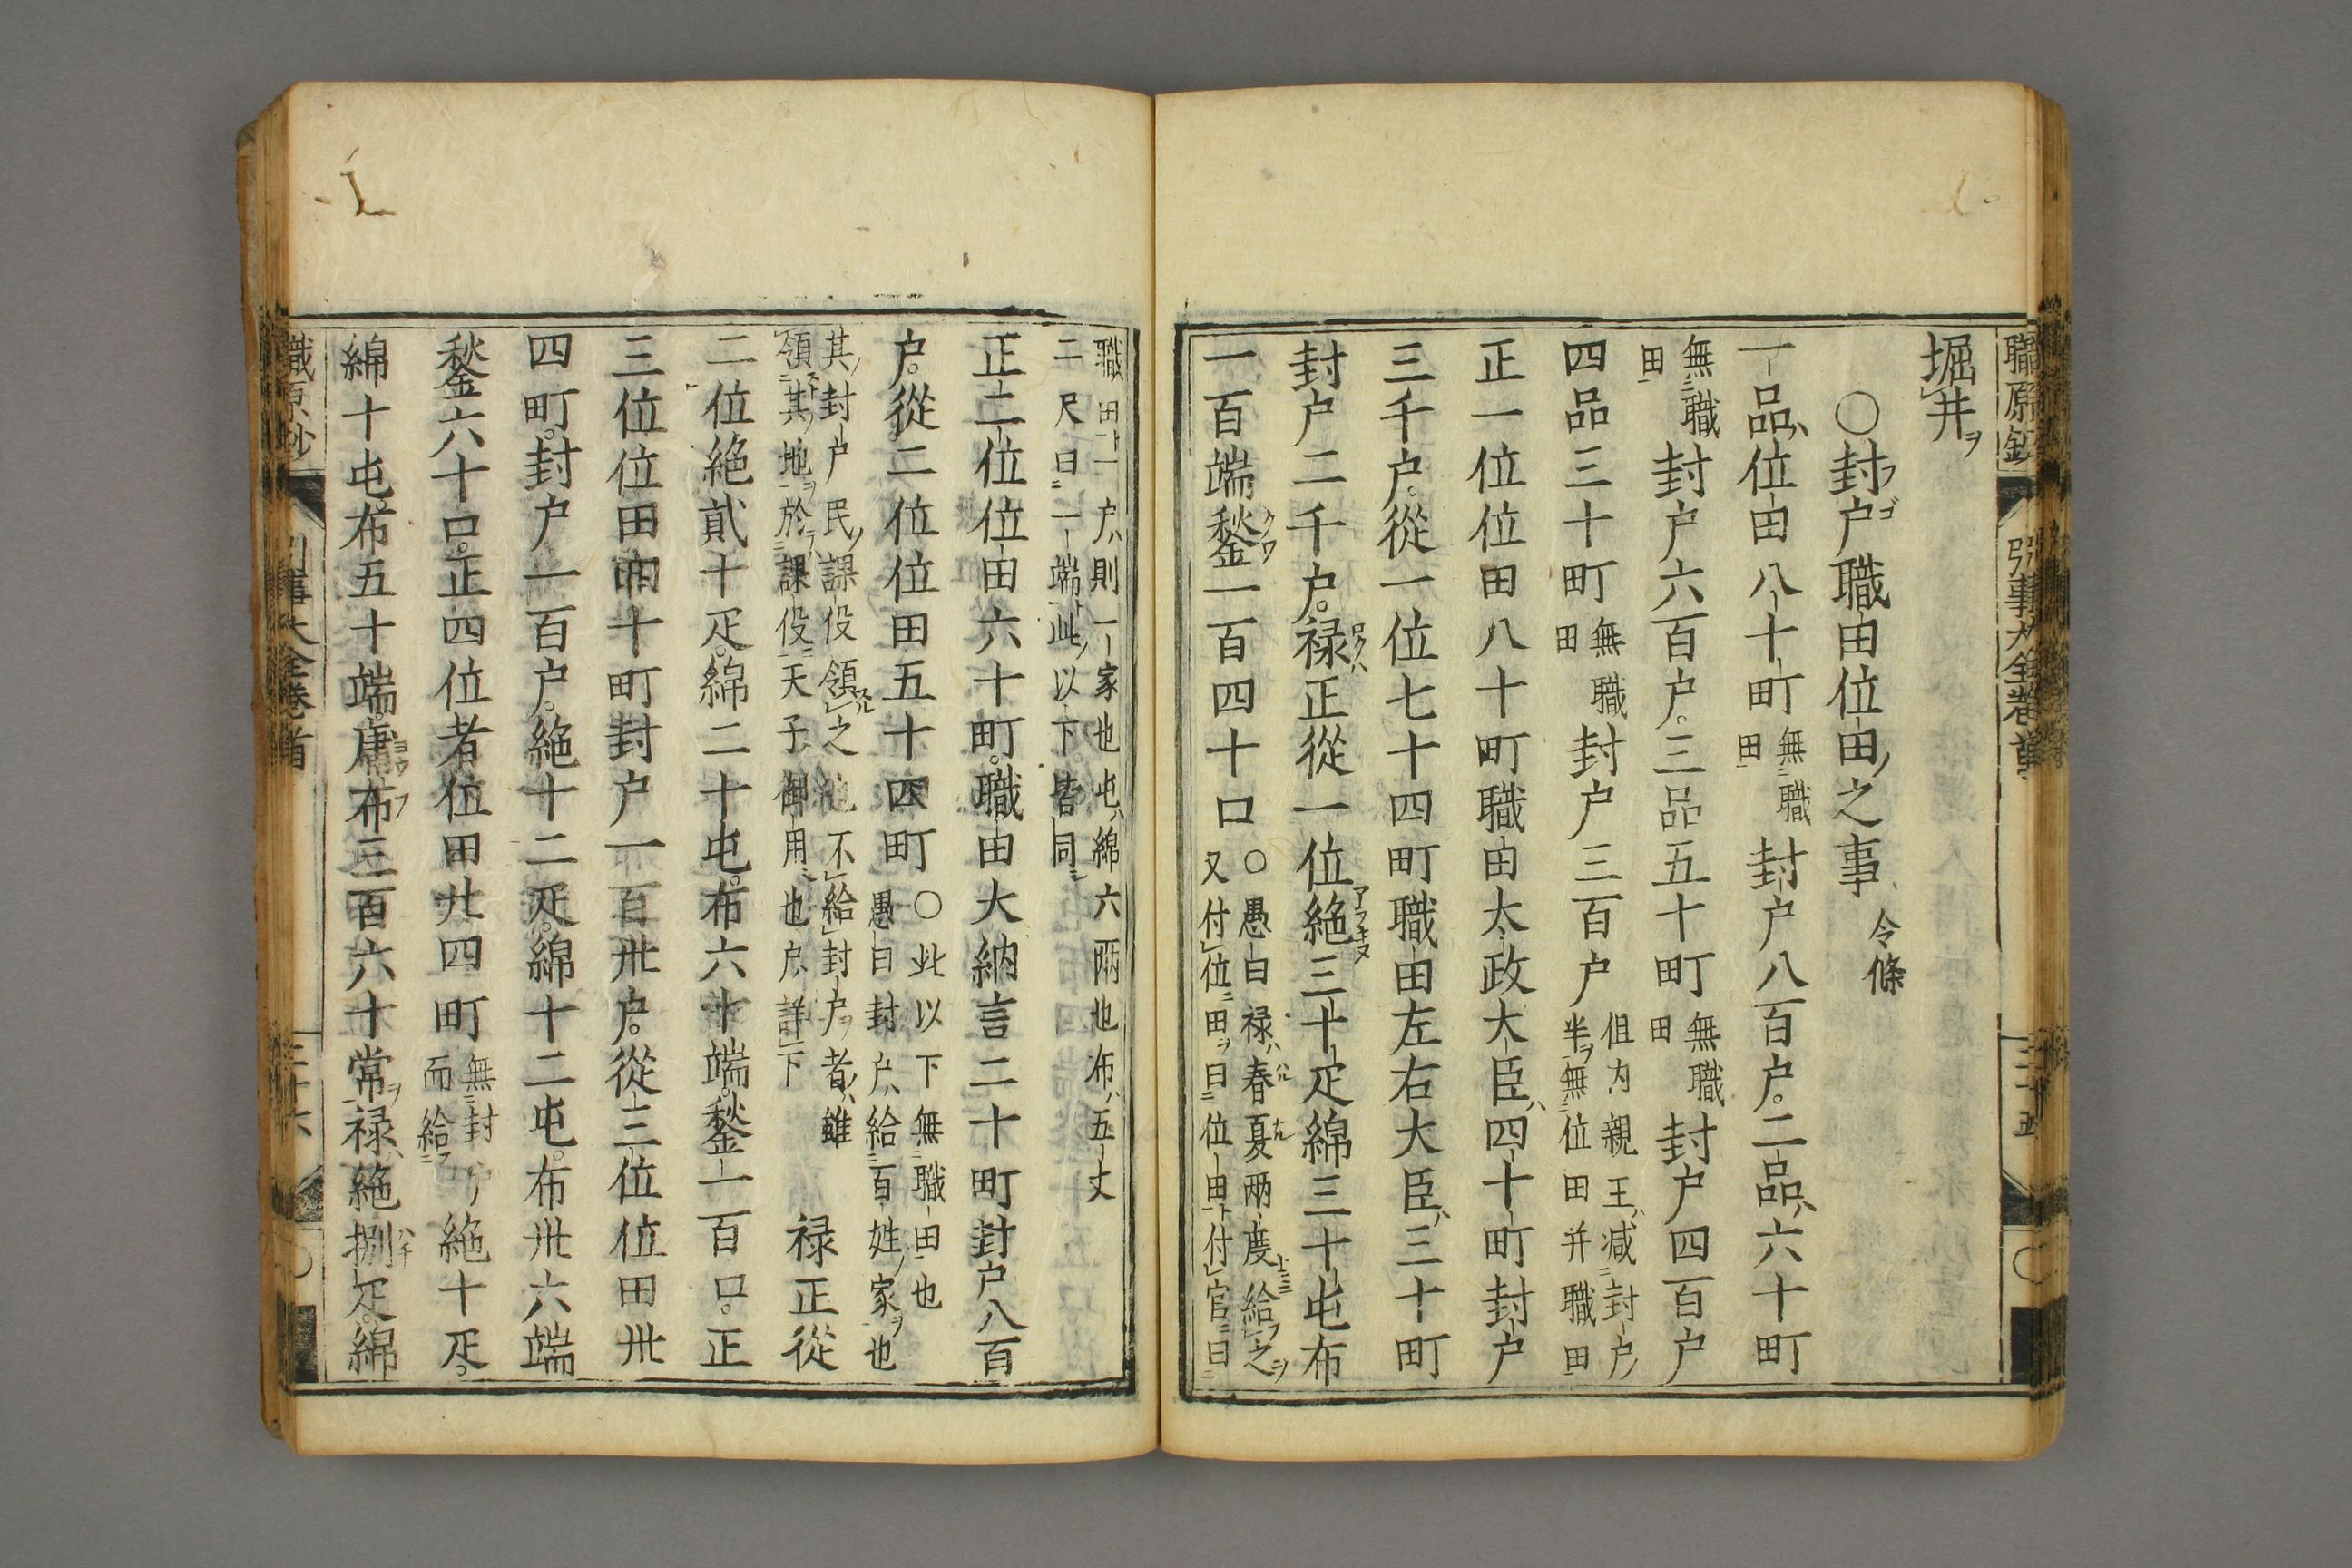 職原鈔 引事大全卷首 三十五
堀井ヲ
〇封戸職田位田ノ之事 令條
一品ハ位田八十町 無職田 封戸八百戸。二品ハ六十町
無職田 封戸六百戸。三品五十町 無職田 封戸四百戸
四品三十町 無職田 封戸三百戸 但内親王ハ減封戸ノ半ヲ無位田并職田
正一位位田八十町職田太政大臣ハ四十町封戸
三千戸。從一位七十四町職田左右大臣ハ三十町
封戸二千戸。禄ハ正從一位絁三十疋綿三十屯布
一百端鍫一百四十口 〇愚曰禄ハ春夏兩度ニ給之 又付位ニ田ヲ曰位田ト付官ニ曰
職田ト一戸ハ則一家也屯ハ綿六兩也布ハ五丈
二尺曰一端ト此ノ以下皆同
正二位位田六十町。職田大納言二十町封戸八百
戸。從二位位田五十四町 〇此以下無職田也 愚曰封戸ハ給百姓ノ家ヲ也
其ノ封戸民ノ課役領之 不給封戸ヲ者ハ雖
領其ノ地ヲ於課役ニ天子御用也戸ハ詳下 禄正從
二位絁貳十疋。綿二十屯。布六十端。鍫一百口。正
三位位田四十町封戸一百卅戸。從三位位田卅
四町。封戸一百戸。絁十二疋。綿十二屯。布卅六端
鍫六十口。正四位者位田廿四町 無封 而給 絁十疋。
綿十屯布五十端。庸布三百六十常。禄ハ絁捌疋。綿
職原鈔 引事大全卷首 三十六